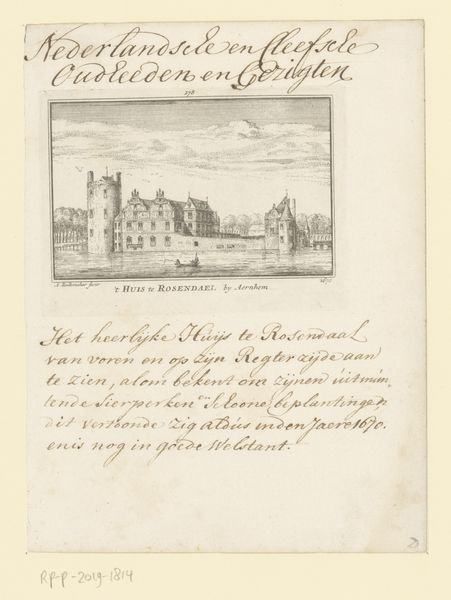 Nederlandsche en Cleefsche
Oudheeden en Gezigten
278
A. Rademaker fecit
1670
't HUIS te ROSENDAEL by Aernhem
Het heerlijke Huijs te Rosendaal
van voren en op zijn Regter zijde aan
te zien, alom bekent om zijnen úitmún
tende Sierperken en Schoone beplantingen,
dit vertoonde zig aldús inden Jaere 1670.
en is nog in goede Welstant.
RP-P-2019-1814